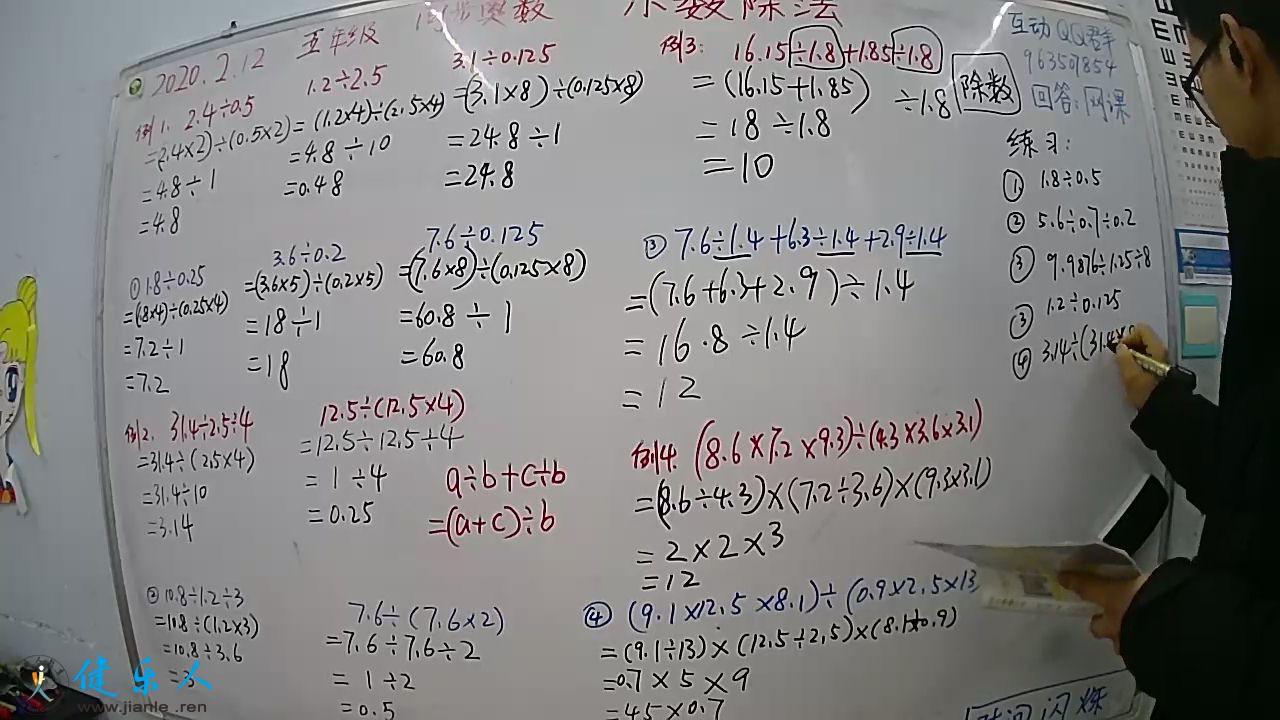 2020.2.12
五年级
同步奥数
小数除法
例1. 2.4÷0.5
=(2.4×2)÷(0.5×2)
=4.8÷1
=4.8
1.2÷2.5
=(1.2×4)÷(2.5×4)
=4.8÷10
=0.48
3.1÷0.125
=(3.1×8)÷(0.125×8)
=24.8÷1
=24.8
①1.8÷0.25
=(1.8×4)÷(0.25×4)
=7.2÷1
=7.2
3.6÷0.2
=(3.6×5)÷(0.2×5)
=18÷1
=18
7.6÷0.125
=(7.6×8)÷(0.125×8)
=60.8÷1
=60.8
例2. 31.4÷2.5÷4
=31.4÷(2.5×4)
=31.4÷10
=3.14
12.5÷(12.5×4)
=12.5÷12.5÷4
=1÷4
=0.25
a÷b+c÷b
=(a+c)÷b
②10.8÷1.2÷3
=10.8÷(1.2×3)
=10.8÷3.6
=3
7.6÷(7.6×2)
=7.6÷7.6÷2
=1÷2
=0.5
例3: 16.15÷1.8+1.85÷1.8
=(16.15+1.85)÷1.8
=18÷1.8
=10
除数
③7.6÷1.4+6.3÷1.4+2.9÷1.4
=(7.6+6.3+2.9)÷1.4
=16.8÷1.4
=12
例4. (8.6×7.2×9.3)÷(4.3×3.6×3.1)
=(8.6÷4.3)×(7.2÷3.6)×(9.3×3.1)
=2×2×3
=12
④(9.1×12.5×8.1)÷(0.9×2.5×13
=(9.1÷13)×(12.5÷2.5)×(8.1÷0.9)
=0.7×5×9
=45×0.7
互动QQ群
963509854
回答:网课
练习:
① 1.8÷0.5
② 5.6÷0.7÷0.2
③ 9.9876÷1.25÷8
③ 1.2÷0.125
④ 3.14÷(31.4×
健乐人
www.jianle.ren